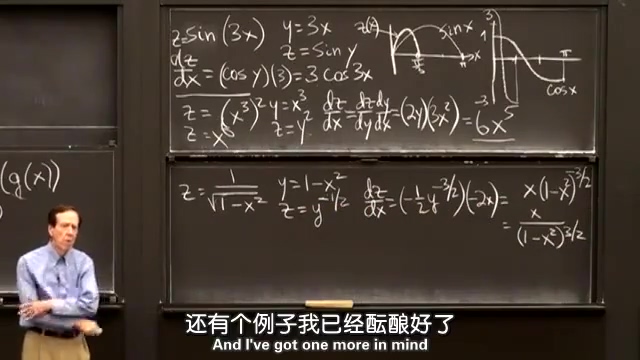 z=sin(3x) y=3x
z=sin y
dz/dx=(cos y)(3)=3 cos3x
z(x) sin x
π/3 π x
3
1
π
cos x
z=(x³)² y=x³ dz/dx=dz/dy dy/dx=(2y)(3x²)=6x⁵
z=x⁶ z=y²
(g(x))
z=1/√(1-x²) y=1-x² dz/dx=(-1/2 y^(-3/2))(-2x)= x(1-x²)^(-3/2)
z=y^(-1/2) = x/(1-x²)^(3/2)
还有个例子我已经酝酿好了
And I've got one more in mind